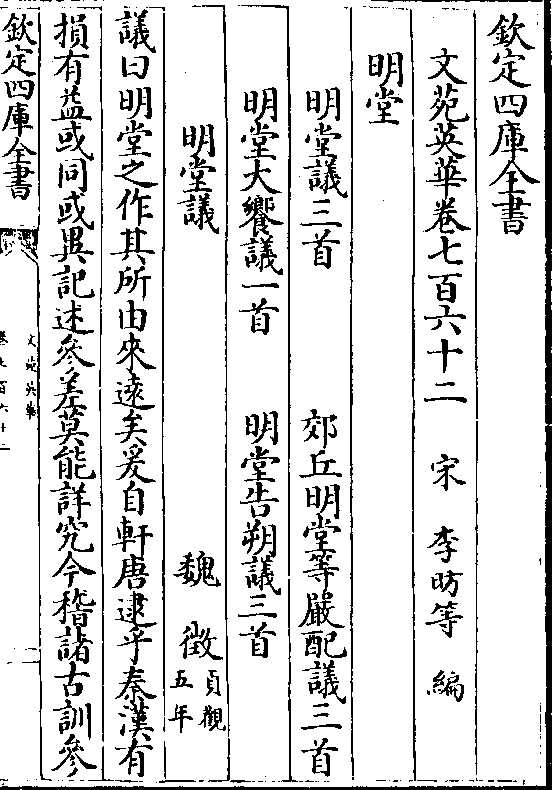 欽定四庫全書
文苑英華卷七百六十二　宋　李昉等　編
明堂
明堂議三首　郊丘明堂等嚴配議三首
明堂大饗議一首　明堂告朔議三首
明堂議　魏　徴貞觀五年
議曰明堂之作其所由來遠矣爰自軒唐逮乎秦漢有
損有益或同或異記述參差莫能詳究今稽諸古訓參
欽定四庫全書
文苑英華
卷七百六十二
一